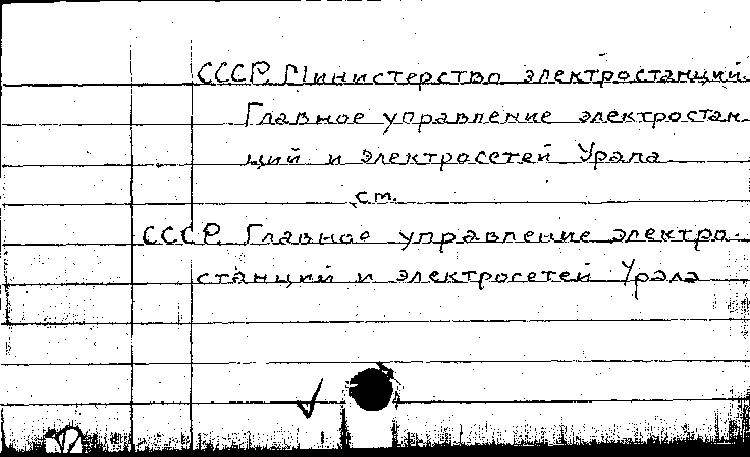 СССР. Министерство электростанций.
Главное управление электростан-
ций и электросетей Урала
см.
СССР. Главное управление электро-
станций и электросетей Урала